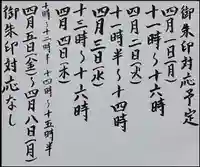 御朱印対応予定
四月一日(月)
十一時〜十六時
四月二日(火)
十一時半〜十四時
四月三日(水)
十三時〜十六時
四月四日(木)
十時〜十二時半 十四時〜十五時半
四月五日(金)〜四月八日(月)
御朱印対応なし